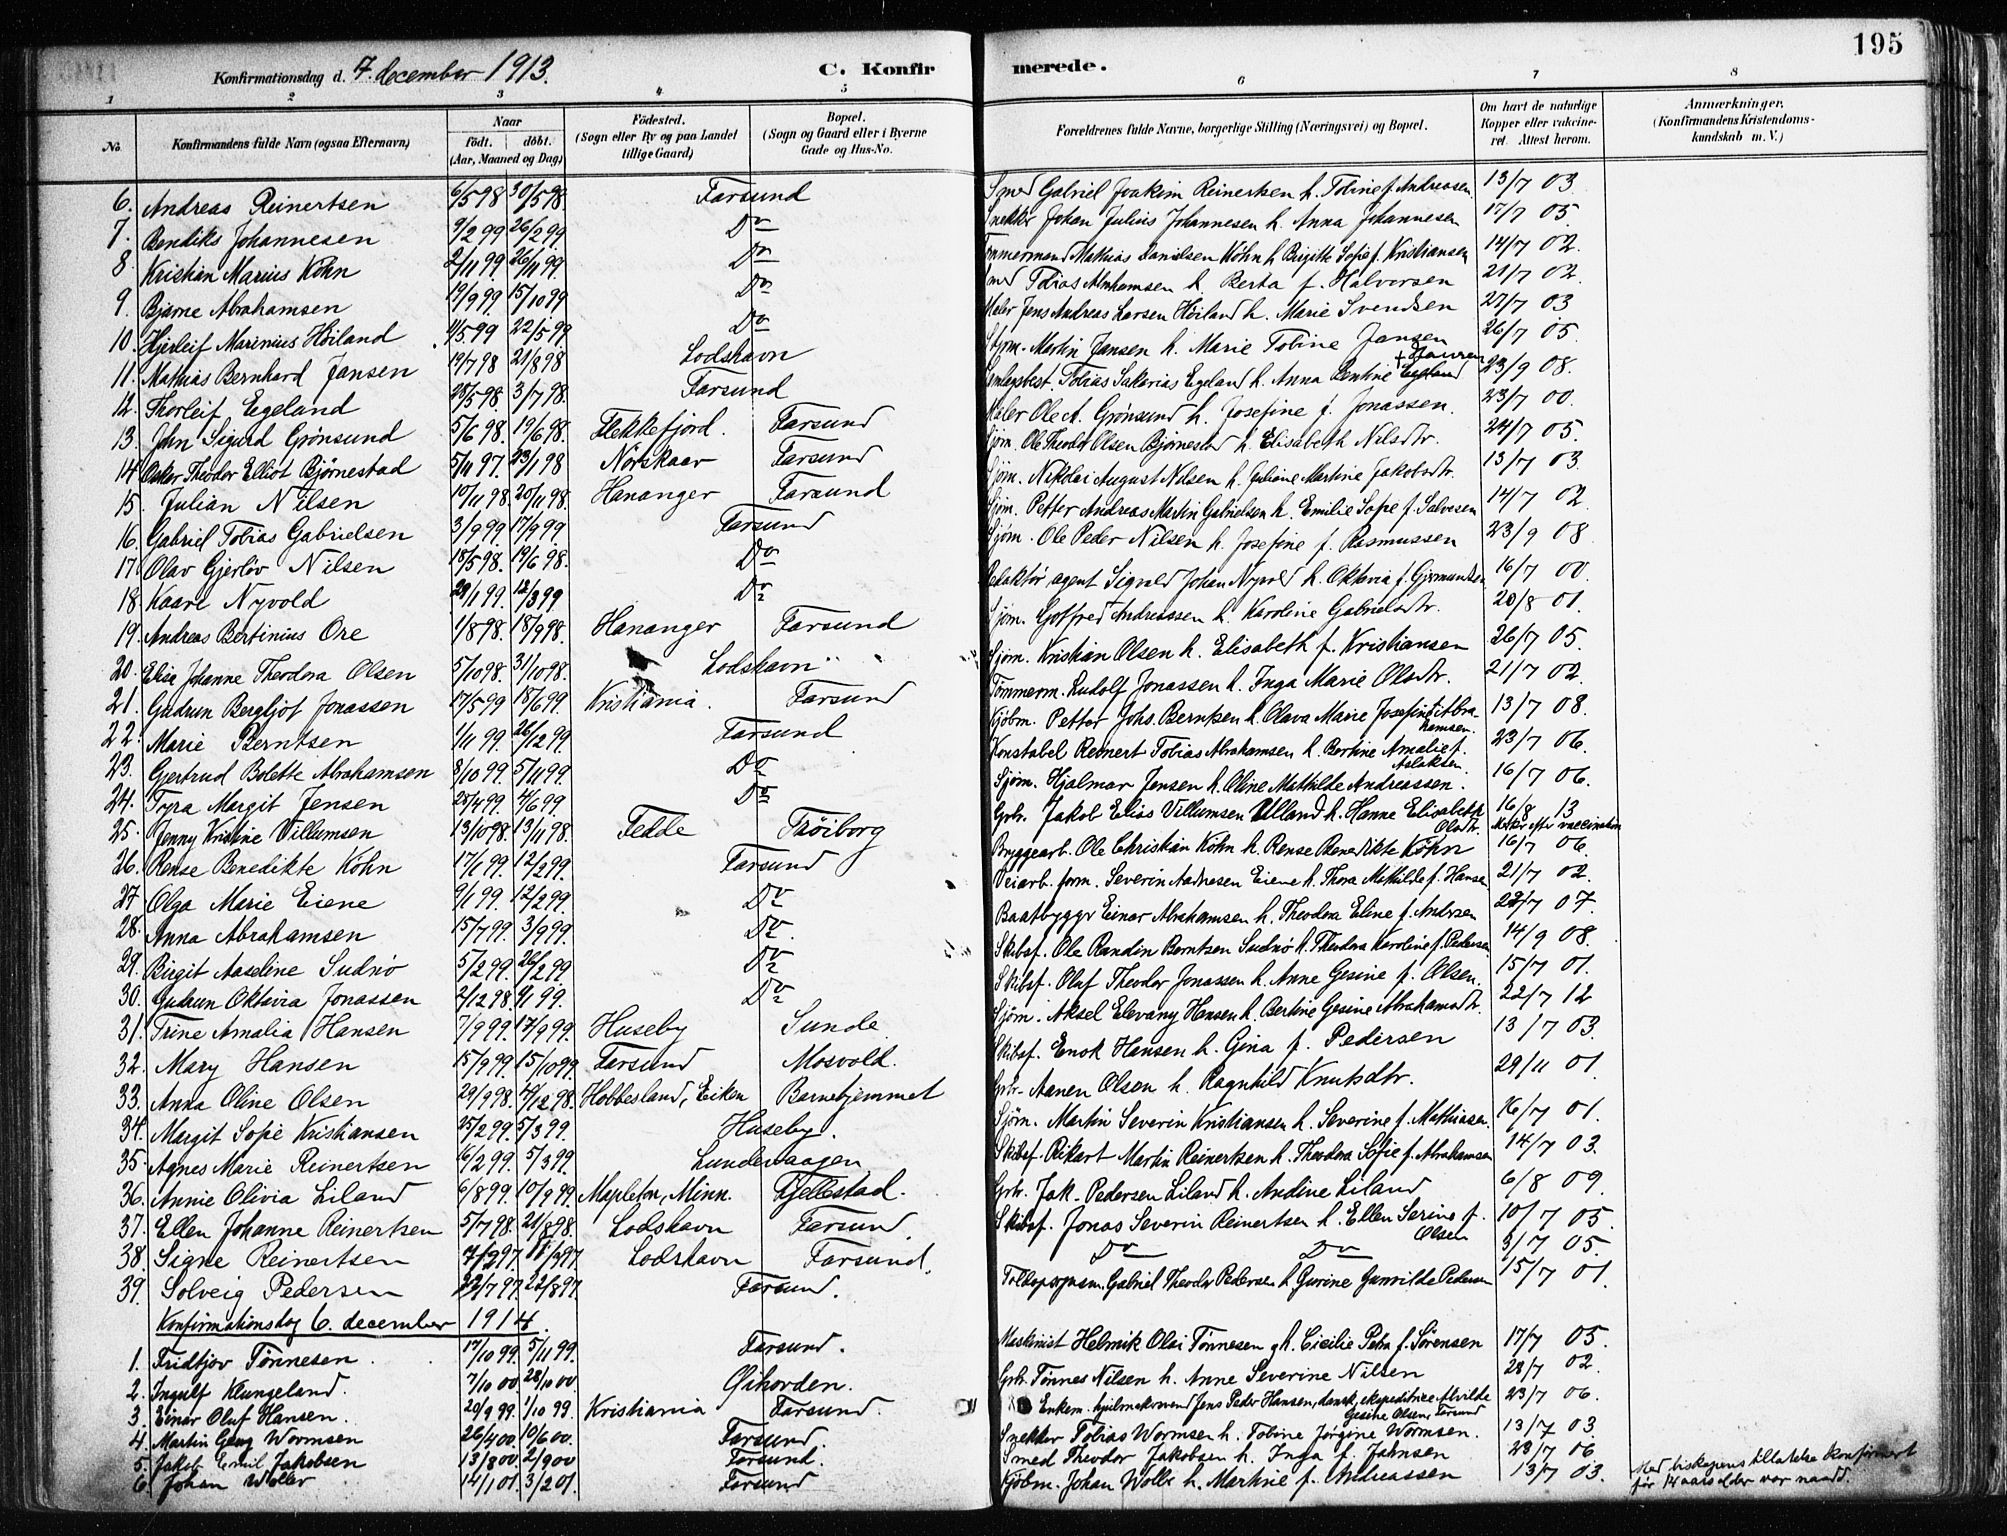 195
Konfirmationsdag d. 7. december 1913.
C. Konfirmerede.
1 2 3 4 5 6 7 8
No. Konfirmandens fulde Navn (ogsaa Efternavn) Naar født. døbt. (Aar, Maaned og Dag) Fødested. (Sogn eller By og paa Landet tillige Gaard) Bopæl. (Sogn og Gaard eller i Byerne Gade og Hus-No. Forældrenes fulde Navne, borgerlige Stilling (Næringsvei) og Bopæl. Om havt de naturlige Kopper eller vakcineret. Attest herom. Anmærkninger. (Konfirmandens Kristendomskundskab m. V.)
6. Andreas Reinertsen 6/5 98 30/5 98. Farsund Smed Gabriel Joakim Reinertsen h. Tobine f. Andreasen 13/7 03
7. Bendiks Johannesen 9/2 99 26/2 99. Do Snekker Johan Julius Johannesen h. Anna Johannesen 17/7 05.
8 Kristian Marius Köhn 2/11 99 26/11 99. Do Tømmermand Mathias Danielsen Köhn h. Birgitte Sofie f. Kristiansen 14/7 02.
9. Bjarne Abrahamsen 19/9 99 15/10 99 Do Smed Tobias Abrahamsen h. Berta f. Halvorsen 21/7 02
10. Hjerleif Marinius Höiland 4/5 99 22/5 99. Do Maler Jens Andreas Larsen Höiland h. Marie Svendsen 27/7 03
11. Mathias Bernhard Jansen 19/7 98 21/8 98 Lodshavn Styrm. Martin Jansen h. Marie Tobine Jansen 26/7 05.
12. Thorleif Egeland 28/5 98. 3/7 98. Farsund Tobias Sakarias Egeland h. Anna Bentine Egeland 23/9 08.
13. John Sigurd Grönsund 5/6 98. 19/6 98. Flekkefjord. Farsund Maler Ole A. Grönsund h. Josefine f. Jonassen. 23/7 00.
14. Oskar Theodor Elliot Bjørnestad 5/11 97. 23/1 98 Nörskaar Farsund Sjøm. Ole Theodor Olsen Bjørnestad h. Elisabeth Nilsdtr. 24/7 05.
15. Julian Nilsen 10/11 98. 20/11 98. Hananger Farsund Sjøm. Nikolai August Nilsen h. Juliane Martine Jakobsdtr. 13/7 03.
16. Gabriel Tobias Gabrielsen 3/9 99. 17/9 99. Farsund Sjøm. Petter Andreas Martin Gabrielsen h. Emilie Sofie f. Salvesen 14/7 02
17. Olav Gjerløv Nilsen 18/5 98. 19/6 98. Do Sjøm. Ole Peder Nilsen h. Josefine f. Rasmussen 23/9 08
18 Kaare Nyvold 29/1 99. 12/3 99 Do Redaktør agent Sigvald Johan Nyvold h. Oktavia f. Gjermundsen 16/7 00.
19. Andreas Bertinius Ore 1/8 98. 18/9 98. Hananger Farsund Sjøm. Gotfred Andreassen h. Karoline Gabrielsdtr. 20/8 01.
20. Elisa Johanne Theodora Olsen 5/10 98. 31/10 98. Lodshavn Sjøm. Kristian Olsen h. Elisabeth f. Kristiansen 26/7 05.
21. Gudrun Bergljot Jonassen 17/5 99 18/6 99. Kristiania. Farsund Tømmerm. Ludolf Jonassen h. Inga Marie Olsdtr. 21/7 02.
22. Marie Berntsen 1/11 99. 26/12 99 Farsund Kjøbm. Petter Johs. Berntsen h. Olava Marie Josefine f. Abrahamsen. 13/7 08.
23. Gjertrud Bolette Abrahamsen 8/10 99. 5/11 99 Do Konstabel Reinert Tobias Abrahamsen h. Bertine Amalie f. Aslaksen. 23/7 06.
24. Tyra Margit Jensen 25/4 99. 4/6 99. Do Sjøm. Hjalmar Jensen h. Oline Mathilde Andreassen. 16/7 06.
25. Jenny Kristine Villumsen 13/10 98. 13/11 98. Fedde Tröiborg Grbr. Jakob Elias Villumsen Ulland h. Hanne Elisabeth Olsdtr. 16/8 13 Mærker efter vaccination
26. Rense Benedikte Köhn 17/1 99. 12/2 99. Farsund Bryggearb. Ole Christian Köhn h. Rense Benedikte Köhn 16/7 06.
27 Olga Marie Eiene 9/1 99. 12/2 99. Do Veiarb. form. Severin Aadnesen Eiene h. Thora Mathilde f. Hansen 21/7 02.
28. Anna Abrahamsen 15/7 99. 3/9 99. Do Baatbyggr Einar Abrahamsen h. Theodora Eline f. Andersen 22/7 07.
29. Birgit Aaseline Sudnö 5/2 99. 26/2 99 Do Skibsf. Ole Randin Berntsen Sudnö h. Theodora Karoline f. Pedersen 14/9 08.
30. Gudrun Oktavia Jonassen 2/12 98. 9/1 99. Do Skibsf. Olaf Theodor Jonassen h. Anne Gesine f. Olsen. 15/7 01.
31. Trine Amalia Hansen 7/9 99. 17/9 99. Huseby Sunde Sjøm. Aksel Elevany Hansen h. Bertine Gesine Abrahamsdtr. 22/7 12
32. Mary Hansen 15/9 99. 15/10 99. Farsund Mosvold. Skibsf. Enok Hansen h. Gina f. Pedersen 13/7 03.
33. Anna Oline Olsen 29/9 98. 4/12 98. Hobbesland, Eiken Barnehjemmet Grbr. Aanen Olsen h. Ragnhild Knutsdtr. 29/11 01.
34. Margit Sofie Kristiansen 25/2 99. 5/3 99. Huseby. Sjøm. Martin Severin Kristiansen h. Severine f. Mathiassen. 16/7 01.
35. Agnes Marie Reinertsen 16/2 99. 5/3 99. Lundevaagen Skibsf. Rikart Martin Reinertsen h. Theodora Sofie f. Abrahamsen 14/7 03.
36. Annie Olivia Liland 6/8 99. 10/9 99. Mapleton, Minn. Fjellestad. Grbr. Jak. Pedersen Liland h. Andine Liland 6/8 09.
37. Ellen Johanne Reinertsen 5/7 98. 21/8 98. Lodshavn Farsund Skibsf. Jonas Severin Reinertsen h. Ellen Serine f. Olsen 10/7 05.
38. Signe Reinertsen Lodshavn Farsund. Do Do 3/7 05.
39. Solveig Pedersen 22/7 97. 22/8 97. Farsund. Toldopsynsm. Gabriel Theodor Pedersen h. Gurine Gunvilde Pedersen 15/7 01.
Konfirmationsdag 6. december 1914.
1. Fridtjov Tönnesen. 17/10 99. 5/11 99. Farsund. Maskinist Helmik Olai Tönnesen gh. Cicilie Petra f. Sørensen 17/7 05.
2. Ingulf Klungeland. 7/10 00 28/10 00. Ojhorden. Grbr. Tønnes Nilsen h. Anne Severine Nilsen 28/7 02.
3. Einar Oluf Hansen. 20/9 99. 1/10 99. Kristiania Farsund. Enkem. hjulmakersvend Jens Peder Hansen, dansk, ekspeditrice Alvilde Gesine Olsen, Farsund 23/7 06.
4. Martin Georg Wormsen 26/4 00. 10/6 00. Farsund. Snekker Tobias Wormsen h. Tobine Jørgine Wormsen. 13/7 03.
5. Jakob Emil Jakobsen 13/8 00. 2/9 00 Farsund. Smed Theodor Jakobsen h. Inga f. Jahnsen 23/7 06
6. Johan Woller 14/1 01. 3/2 01. Farsund Kjøbm. Johan Wolle h. Martine f. Andreassen 13/7 03. Med biskopens tillatelse konfirmert
før 14 aars alder var naadd.